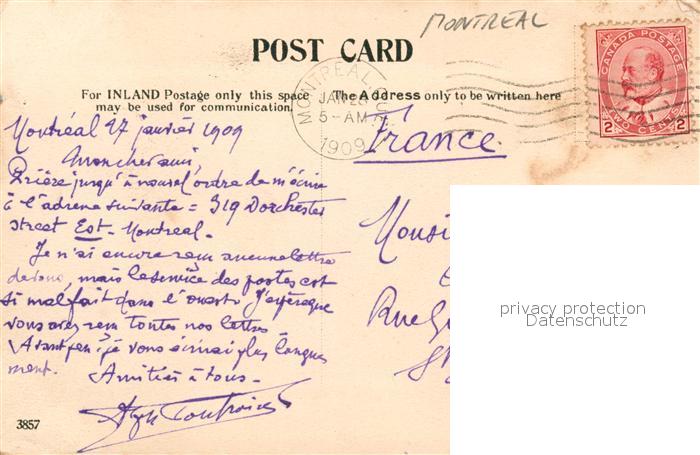 MONTREAL
POST CARD
For INLAND Postage only this space
may be used for communication.
The Address only to be written here
MONTREAL, QUE.
JAN 28
5-AM
1909
CANADA POSTAGE
2 TWO CENTS 2
Montréal 27 janvier 1909
Mon cher ami,
Prière jusqu'à nouvel ordre de m'écrire
à l'adresse suivante = 319 Dorchester
street Est - Montreal -
Je n'ai encore reçu aucune lettre
de vous, mais le service des postes est
si mal fait dans l'ouest. J'espère que
vous avez reçu toutes nos lettres
Avant peu je vous écrirai plus longue
ment. Amitiés à tous -
France
Monsi
Rue
3857
privacy protection
Datenschutz